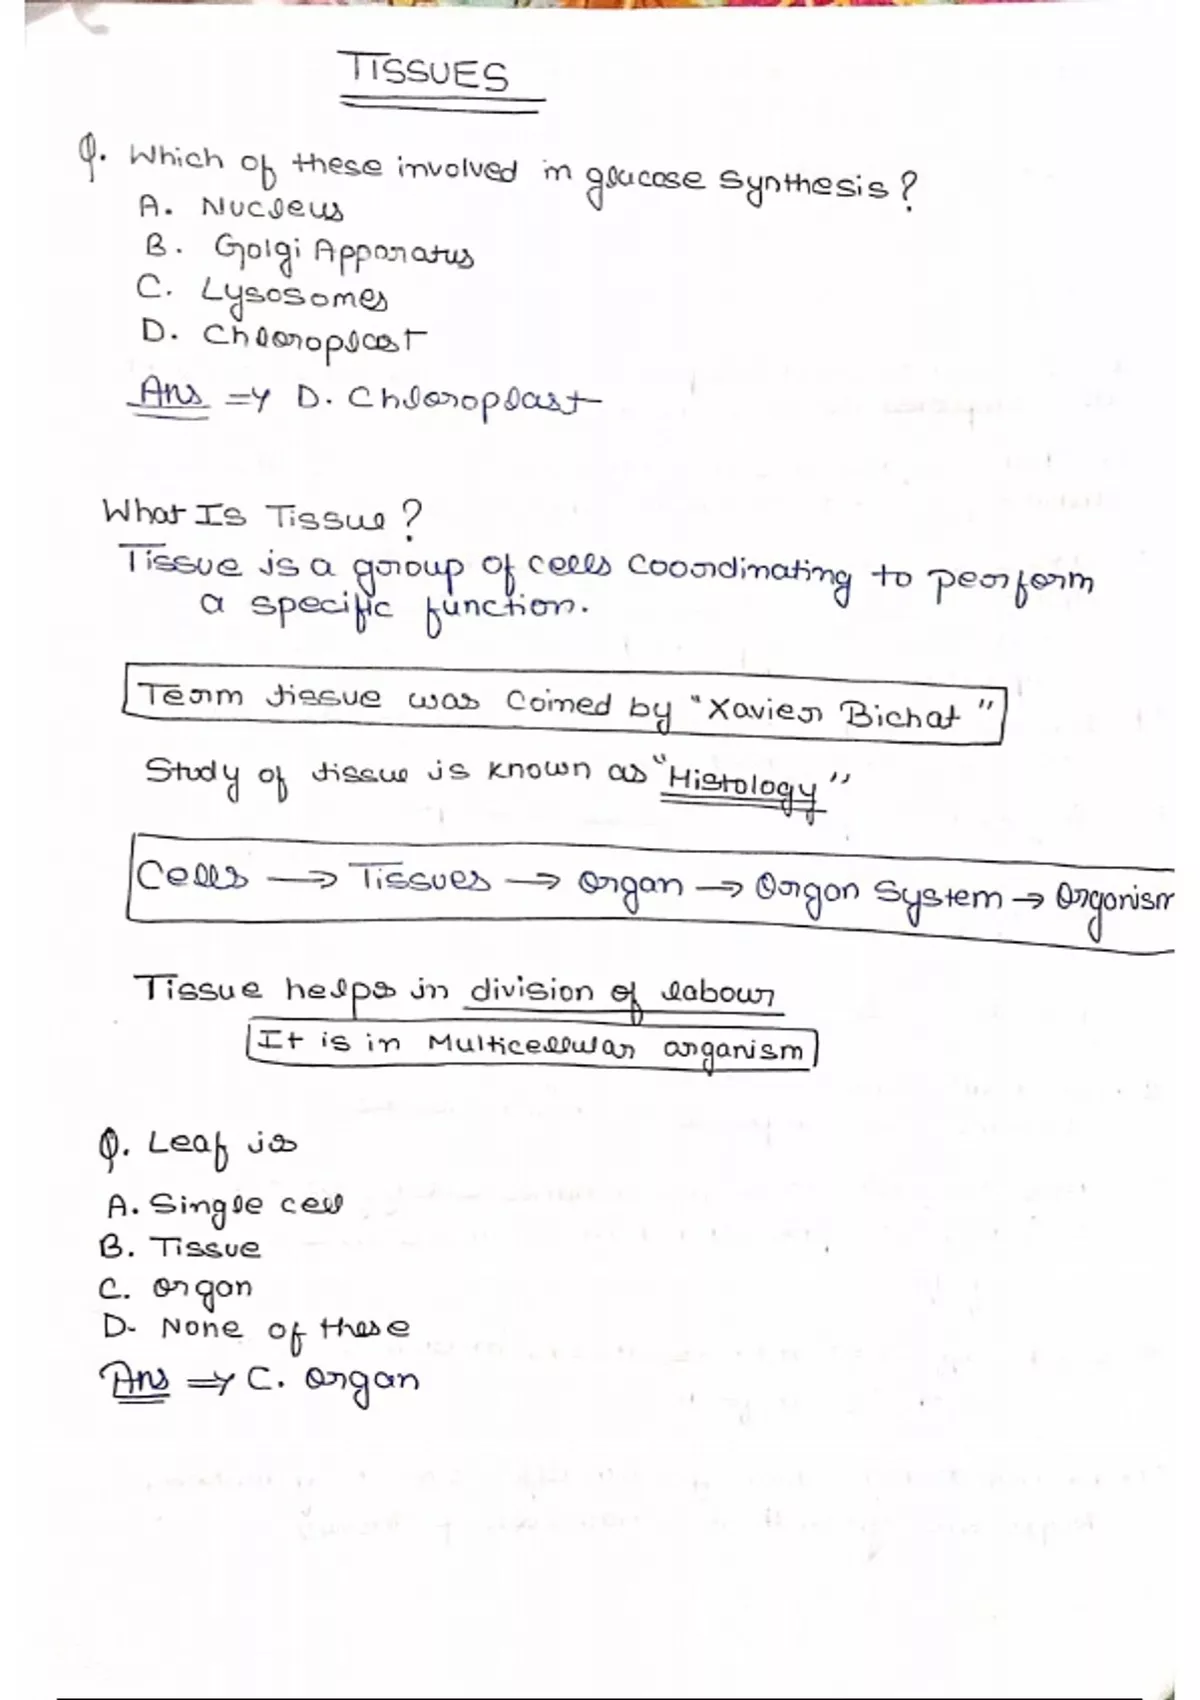 TISSUES
Q. Which of these involved in glucose synthesis?
A. Nucleus
B. Golgi Apparatus
C. Lysosomes
D. Chloroplast
Ans => D. Chloroplast
What Is Tissue?
Tissue is a group of cells coordinating to perform
a specific function.
Term tissue was Coined by "Xavier Bichat"
Study of tissue is known as "Histology"
Cells → Tissues → Organ → Organ System → Organism
Tissue helps in division of labour
It is in Multicellular organism
Q. Leaf is
A. Single cell
B. Tissue
C. organ
D. None of these
Ans => C. organ